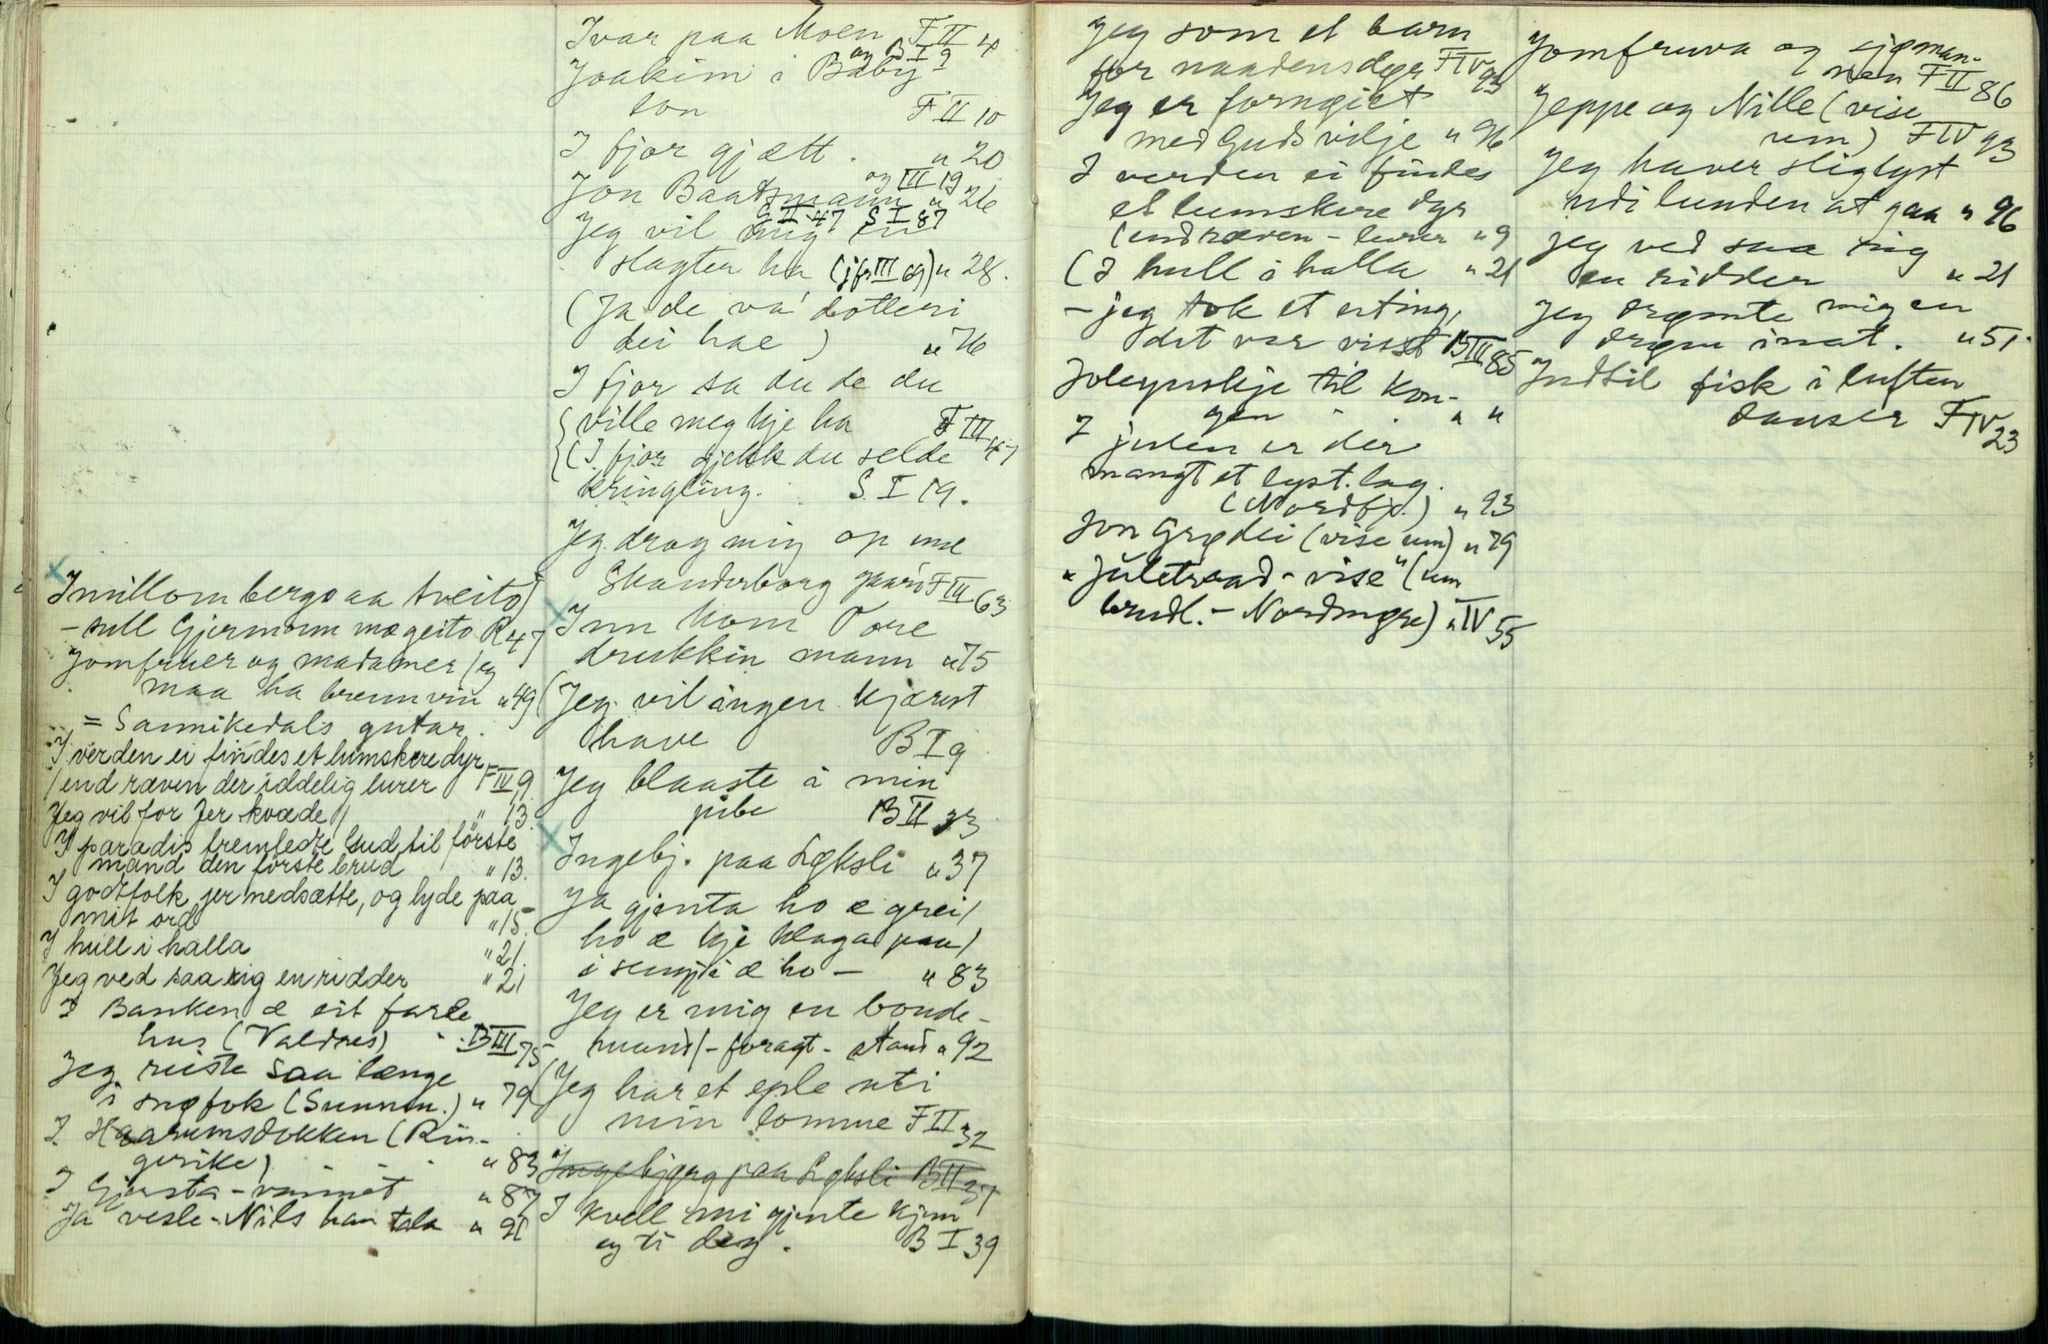 Imillom bergo aa tveito /
- sull Gjermunn mæ geito R 47
Jomfruer og madamer / eg
maa ha brennvin " 49
= Sannikedals gutar.
I verden ei findes et lumskere dyr
/ end ræven der iddelig lurer F IV 9.
Jeg vil for Jer kvæde / " 13.
I paradis fremledte Gud til förste
mand den förste brud " 13.
I godtfolk jer nedsætte, og lyde paa
mit ord " 15.
I hull i halla " 21.
Jeg ved saa rig en ridder " 21
I Banken æ eit farle
hus (Valdres) B III 75
Jeg reiste saa længe
i snøfok (Sunnm.) " 79
I Haarumsdokken (Rin-
gerike) " 83
I Gjersta-
" 87
Ja vesle-Nils han tala " 91
Ivar paa Moen F II 4
og B I 9
Joakim i Baby-
lon F II 10
I fjor gjætt. " 20
og III 19
Jon Baatsmann " 26
G II 47 S I 87
Jeg vil mig en
slagter ha (jfr III 69) " 28.
(Ja de va' dotteri
dei hae) " 76
I fjor sa du de du
ville meg kje ha F III 47
(I fjor gjekk du selde
kringling. S. I 19.
Jeg drog mig op me
Skanderborg gaard F III 63
Inn kom Tore
drukkin mann " 75
(Jeg vil ingen kjærest
have B I 9
Jeg blaaste i min
pibe B II 33
Ingebj. paa Løksli " 37
Ja gjenta ho æ grei /
ho æ kje klaga paa /
i sengji æ ho - " 83
Jeg er mig en bonde-
mand / - foragt - stand " 92
(Jeg har et eple uti
min lomme F II 32
Ingebjørg paa Løksli B II 37
I kvell mi gjente kjem
eg ti deg. B I 39
Jeg som et barn
for naadens dør F IV 93
Jeg er fornøiet
med Guds vilje " 96
I verden ei findes
et lumskere dyr
(end ræven - lurer " 9
(I hull i halla " 21
- jeg tok et eting,
det var visst B III 85
Joleynskje til kon-
gen " "
I julen er der
mangt et lyst. lag.
(Nordfj.) " 93
Jon Grødei (vise um) " 79
"Juletraad-vise" (um
brudl. - Nordmøre) " IV 55
Jomfruva og sjøman-
nen F II 86
Jeppe og Nille (vise
um) F IV 93
Jeg haver slig lyst
udi lunden at gaa " 96
Jeg ved saa rig
en ridder " 21
Jeg drømte mig en
drøm i nat. " 51.
Indtil fisk i luften
danser F IV 23